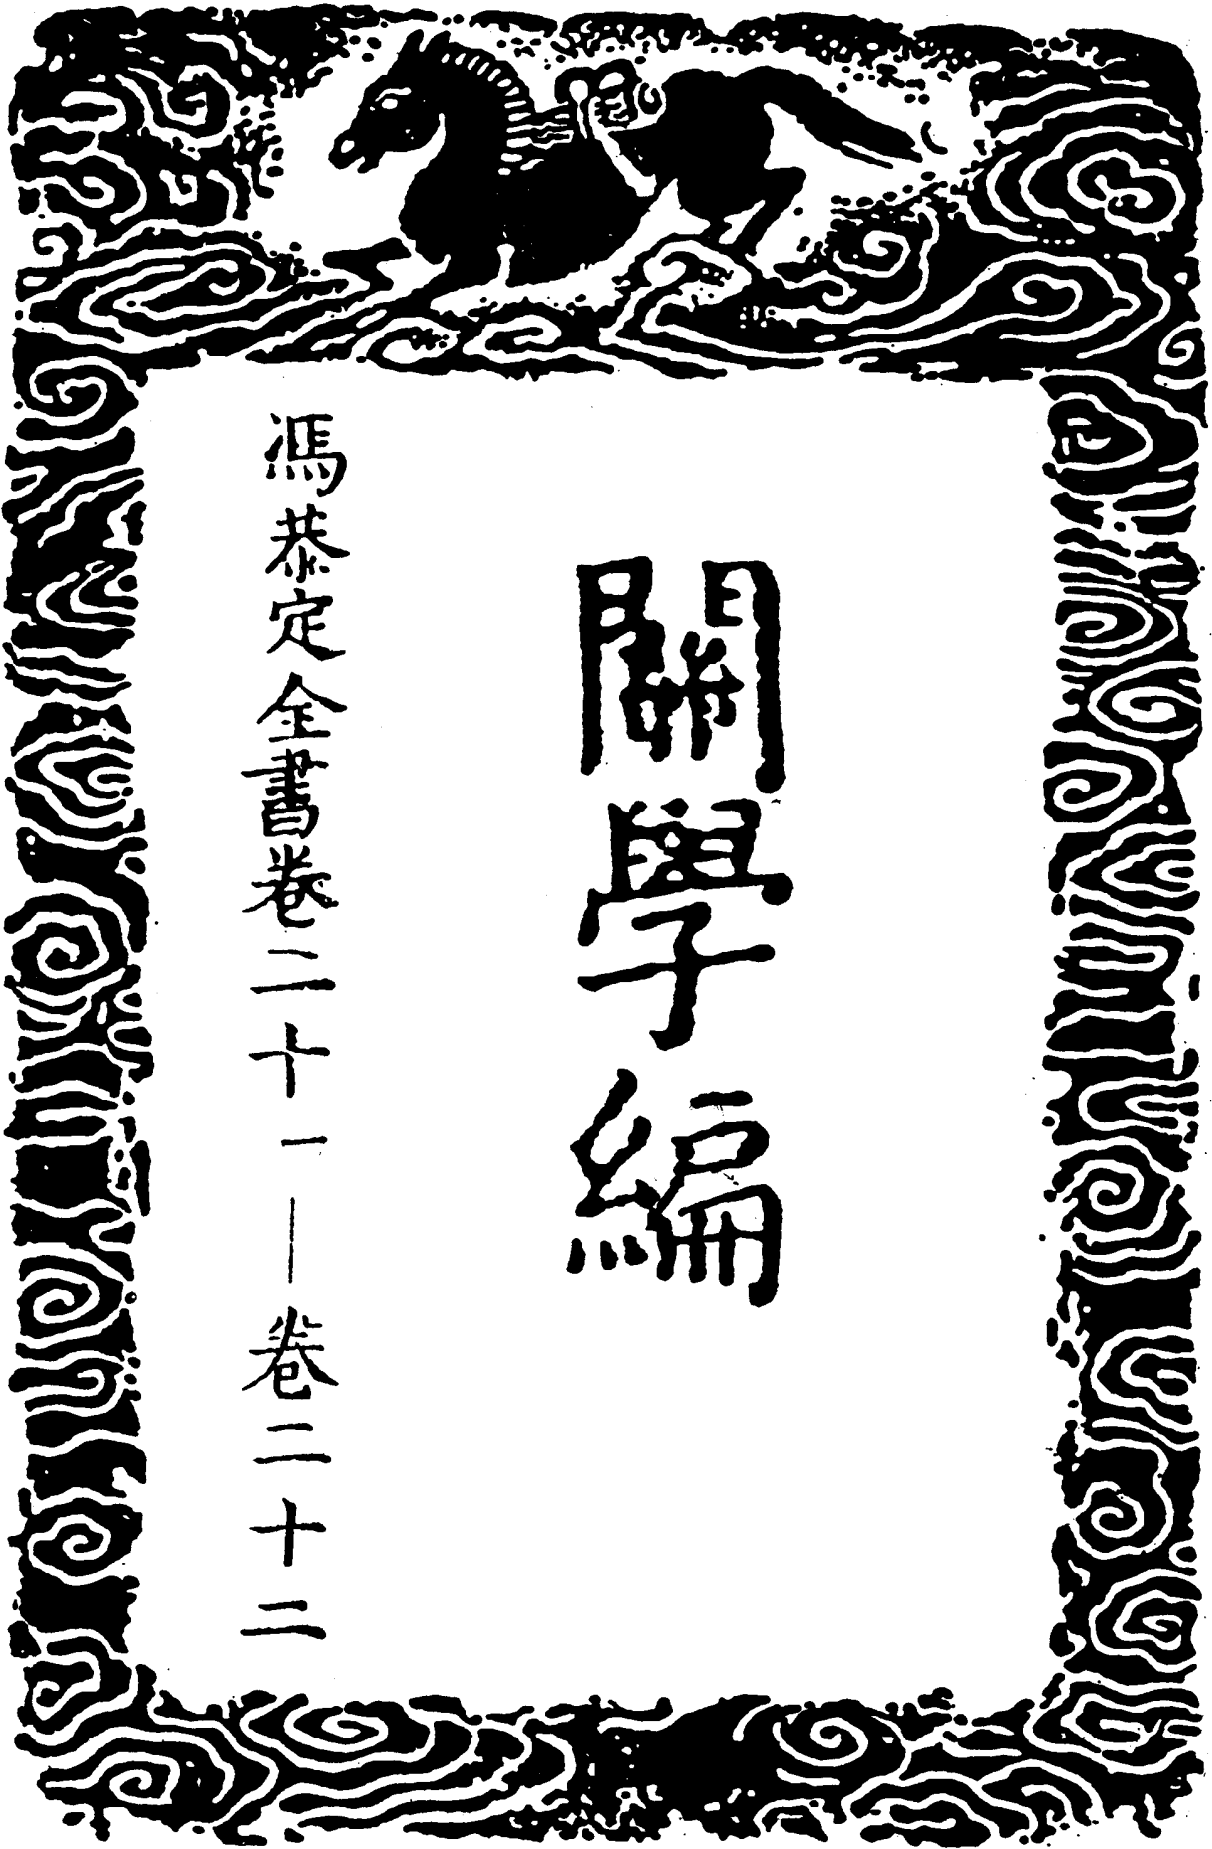 關學編
馮恭定全書卷二十一—卷二十二